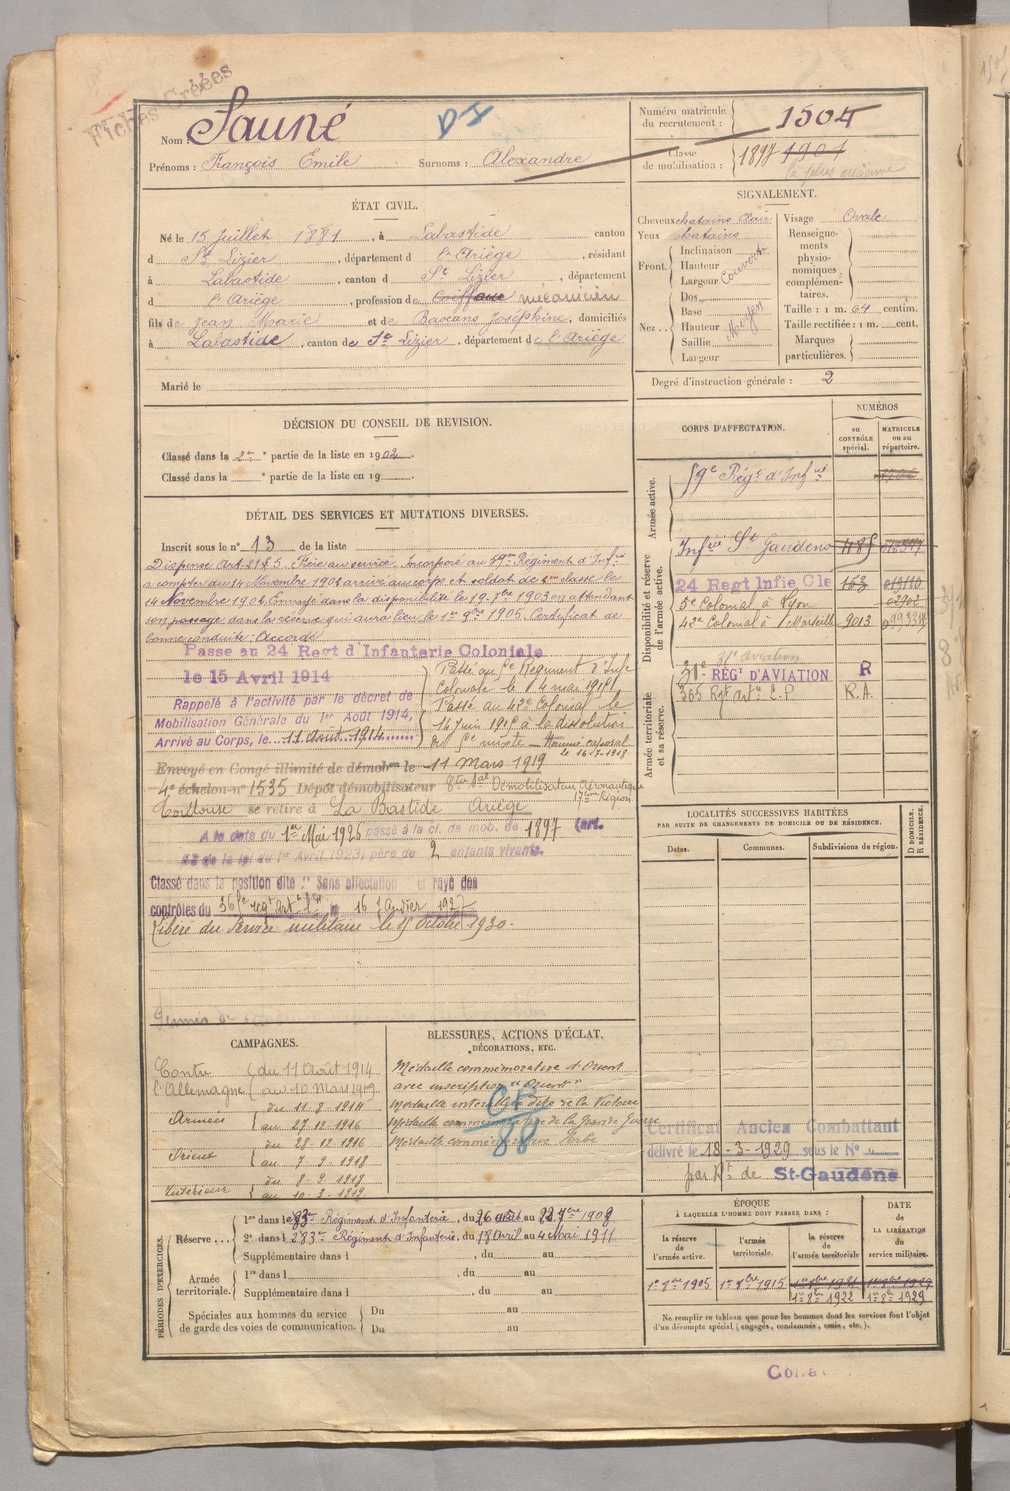 Fiches Créées
Nom : Sauné
D I
Prénoms : François Emile Surnoms : Alexandre
Numéro matricule du recrutement : 1504
Classe de mobilisation : 1897 1901
la plus ancienne
ÉTAT CIVIL.
Né le 15 Juillet 1881, à Labastide canton
d St Lizier, département d l'Ariège, résidant
à Labastide, canton d St Lizier, département
d l'Ariège, profession de Coiffeur mécanicien
fils de Jean Marie et de Bascans Joséphine, domiciliés
à Labastide, canton de St Lizier, département de l'Ariège
Marié le
SIGNALEMENT.
Cheveux chatains clair
Yeux chatains
Front. Inclinaison
Hauteur
Largeur
Couvert
Nez.. Dos
Base
Hauteur
Saillie
Largeur
Moyen
Visage Ovale
Renseignements physionomiques complémentaires.
Taille : 1 m. 64 centim.
Taille rectifiée : 1 m. cent.
Marques particulières.
Degré d'instruction générale : 2
DÉCISION DU CONSEIL DE REVISION.
Classé dans la 2e partie de la liste en 1902
Classé dans la e partie de la liste en 19
DÉTAIL DES SERVICES ET MUTATIONS DIVERSES.
Inscrit sous le n° 13 de la liste
Dispensé Art 21 § 5. Frère au service. Incorporé au 59me Régiment d'Infrie
à compter du 14 Novembre 1901 arrivé au corps et soldat de 2me classe le
14 Novembre 1901. Envoyé dans la disponibilité le 19 7bre 1903 en attendant
son passage dans la réserve qui aura lieu le 1er 9bre 1905. Certificat de
bonne conduite : Accordé
Passé au 24 Regt d'Infanterie Coloniale
le 15 Avril 1914
Rappelé à l'activité par le décret de
Mobilisation Générale du 1er Août 1914,
Arrivé au Corps, le 11 Août 1914
Passé au 5e Régiment d'Infie
Coloniale le 4 mai 1918
Passé au 42e Colonial le
14 Juin 1918 à la dissolution
du 5e mixte – Nommé caporal
le 16-7-1918
Envoyé en Congé illimité de démobon le 11 Mars 1919
4e échelon n° 1535 Dépôt démobilisateur Démobilisateur Aéronautique
17ème Région
Toulouse se retire à La Bastide Ariège
A la date du 1er Mai 1925 passé à la cl. de mob. de 1897 (art.
58 de la loi du 1er Avril 1923) père de 2 enfants vivants.
Classé dans la position dite : "Sans affectation et rayé des
contrôles du 365e regt Artie le 16 Janvier 1927
Libéré du service militaire le 15 octobre 1930.
CORPS D'AFFECTATION.
NUMÉROS
au CONTRÔLE spécial.
MATRICULE ou au répertoire.
Armée active.
59e Régt d'Infrie
Disponibilité et réserve de l'armée active.
Infrie St Gaudens 485
24 Regt Infie Cle 153
5e Colonial à Lyon
42e Colonial à Marseille 9013
Armée territoriale et sa réserve.
31e aviation
31e RÉGt D'AVIATION R
365 Rgt Artie C.P R.A.
LOCALITÉS SUCCESSIVES HABITÉES
PAR SUITE DE CHANGEMENTS DE DOMICILE OU DE RÉSIDENCE.
Dates.
Communes.
Subdivisions de région.
D DOMICILE.
R RÉSIDENCE.
CAMPAGNES.
Contre l'Allemagne du 11 Août 1914
au 10 Mars 1919
Armées du 11-8-1914
au 27-12-1916
Orient du 28-12-1916
au 7-9-1918
Intérieur du 8-9-1918
au 10-3-1919
BLESSURES, ACTIONS D'ÉCLAT,
DÉCORATIONS, ETC.
Médaille commémorative d'Orient
avec inscription "Orient"
Médaille interalliée dite de la Victoire
Médaille commémorative de la Grande Guerre
Médaille commémorative Serbe
88
Certificat Ancien Combattant
délivré le 18-3-1929 sous le N°
par Rt de St-Gaudens
PÉRIODES D'EXERCICES.
Réserve... 1re dans le 83me Régiment d'Infanterie, du 26 août au 22 7bre 1908
2e dans l 283me Régiment d'Infanterie, du 18 Avril au 4 Mai 1911
Supplémentaire dans l , du au
Armée territoriale. 1re dans l , du au
Supplémentaire dans l , du au
Spéciales aux hommes du service de garde des voies de communication.
Du au
Du au
ÉPOQUE
À LAQUELLE L'HOMME DOIT PASSER DANS :
la réserve de l'armée active.
l'armée territoriale.
la réserve de l'armée territoriale
DATE de LA LIBÉRATION du service militaire.
1er 9bre 1905
1er 8bre 1915
1er 8bre 1921
1er 8bre 1922
1er 8bre 1927
1er 8bre 1929
Ne remplir ce tableau que pour les hommes dont les services font l'objet
d'un décompte spécial (engagés, condamnés, omis, etc.).